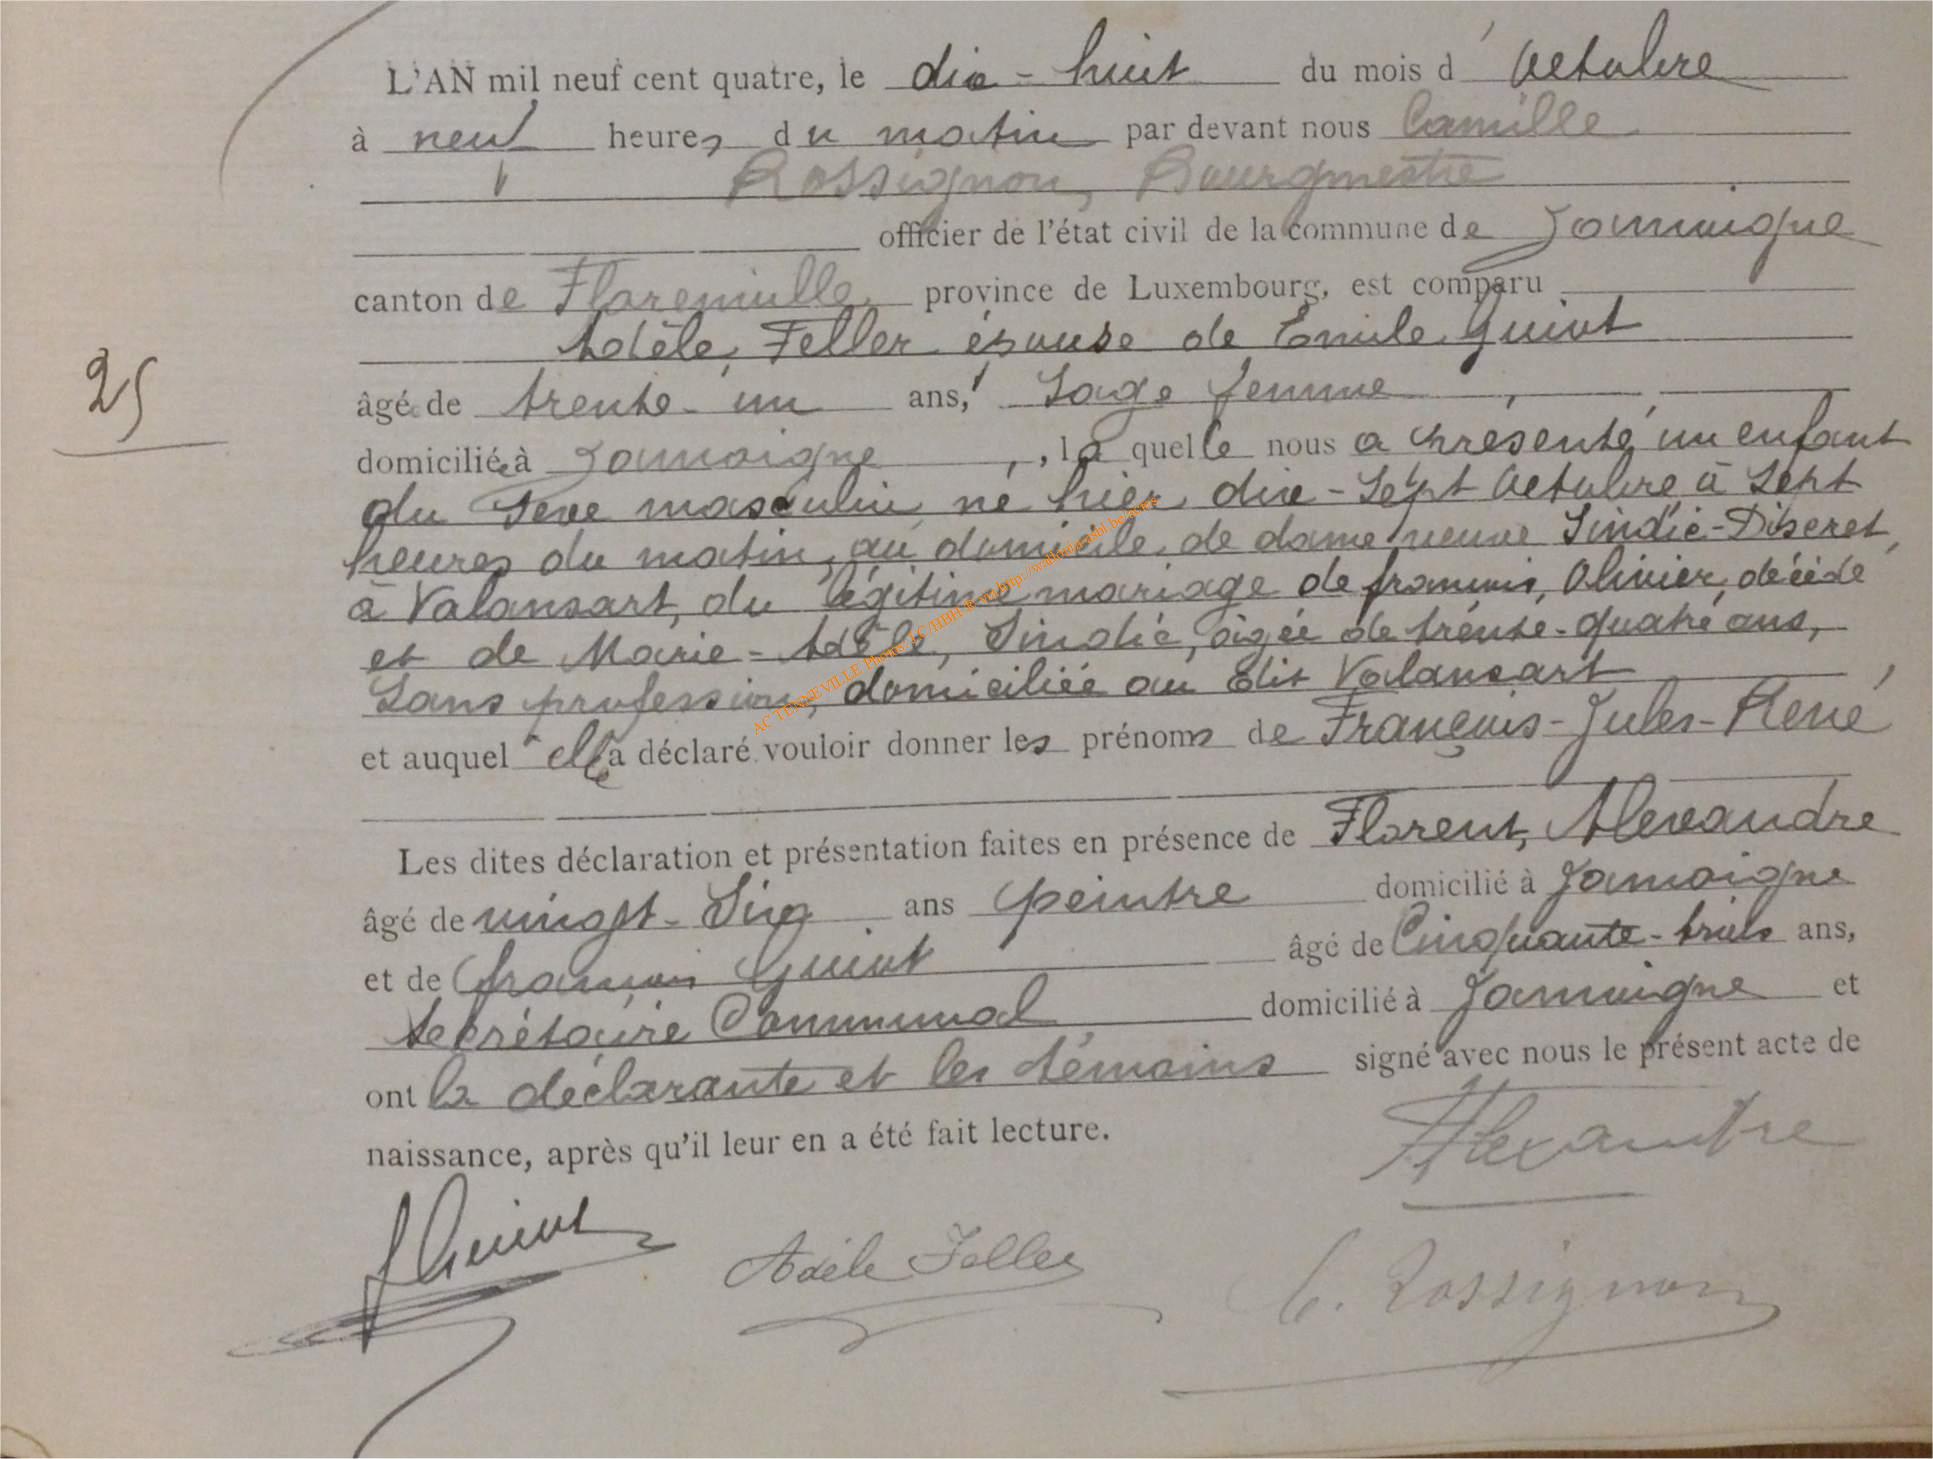 L'AN mil neuf cent quatre, le dix-huit du mois d'Octobre
à neuf heures du matin par devant nous Camille
Rossignon, Bourgmestre
officier de l'état civil de la commune de Jamoigne
canton de Florenville, province de Luxembourg, est comparu
Adèle, Feller épouse de Emile Guiot
âgée de trente-un ans, Sage femme,
25
domiciliée à Jamoigne, laquelle nous a présenté un enfant
du Sexe masculin né hier dix-Sept Octobre à Sept
heures du matin, au domicile de dame veuve Sindic-Discret,
à Valansart, du légitime mariage de françois, Olivier, décédé
et de Marie-Adèle, Sindic, âgée de trente-quatre ans,
Sans profession, domiciliée au dit Valansart
et auquel elle a déclaré vouloir donner les prénoms de François-Jules-René
Les dites déclaration et présentation faites en présence de Florent, Alexandre
âgé de vingt-Six ans peintre domicilié à Jamoigne
et de françois Guiot âgé de Cinquante-trois ans,
Secrétaire Communal domicilié à Jamoigne et
ont la déclarante et les témoins signé avec nous le présent acte de
naissance, après qu'il leur en a été fait lecture.
Alexandre
f Guiot Adèle Feller C. Rossignon